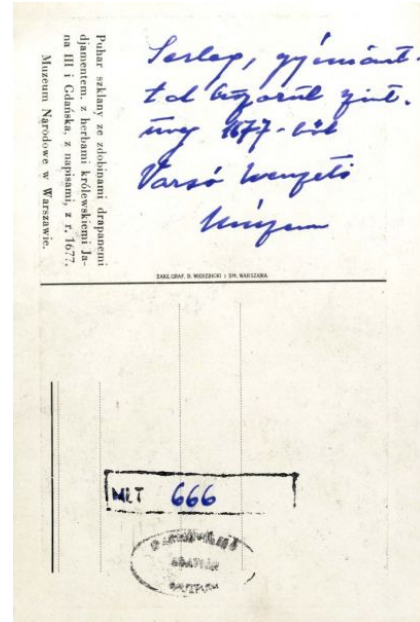 Puhar szklany ze zdobinami drapanemi
djamentem, z herbami królewskiemi Ja-
na III i Gdańska, z napisami, z r. 1677.
Muzeum Narodowe w Warszawie.
Serleg, gyémánt-
tal
üveg 1677-ből
Varsó Nemzeti
Múzeum
ZAKŁ. GRAF. B. WIERZBICKI i S-KA, WARSZAWA
MLT 666